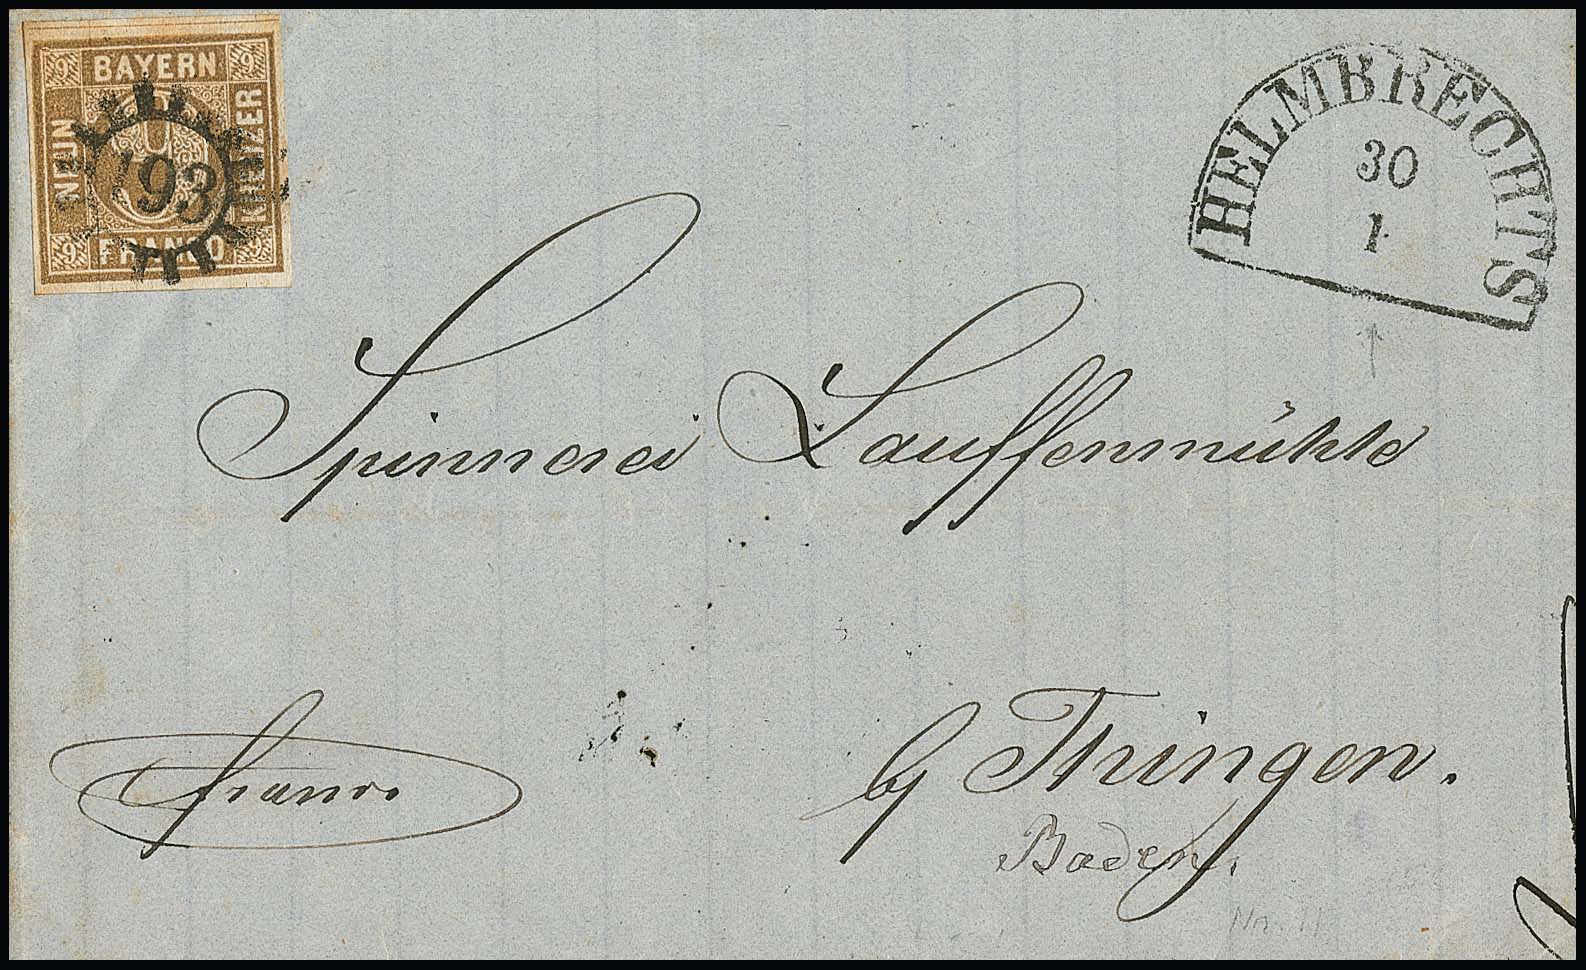 9 BAYERN 9
NEUN
KREUZER
9 FRANCO 9
193
HELMBRECHTS
30
1
Spinnerei Lauffenmühle
franco
b/ Thingen.
Baden.
No. 11